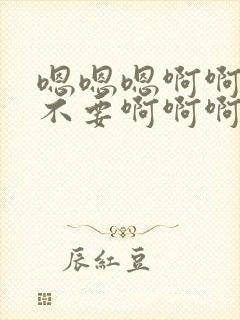 嗯嗯嗯啊啊
不要啊啊啊
辰紅豆